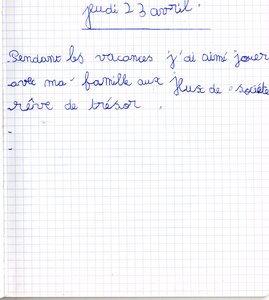 jeudi 23 avril.
Pendant les vacances j'ai aimé jouer
avec ma famille aux jeux de société
rêve de trésor.
-
-